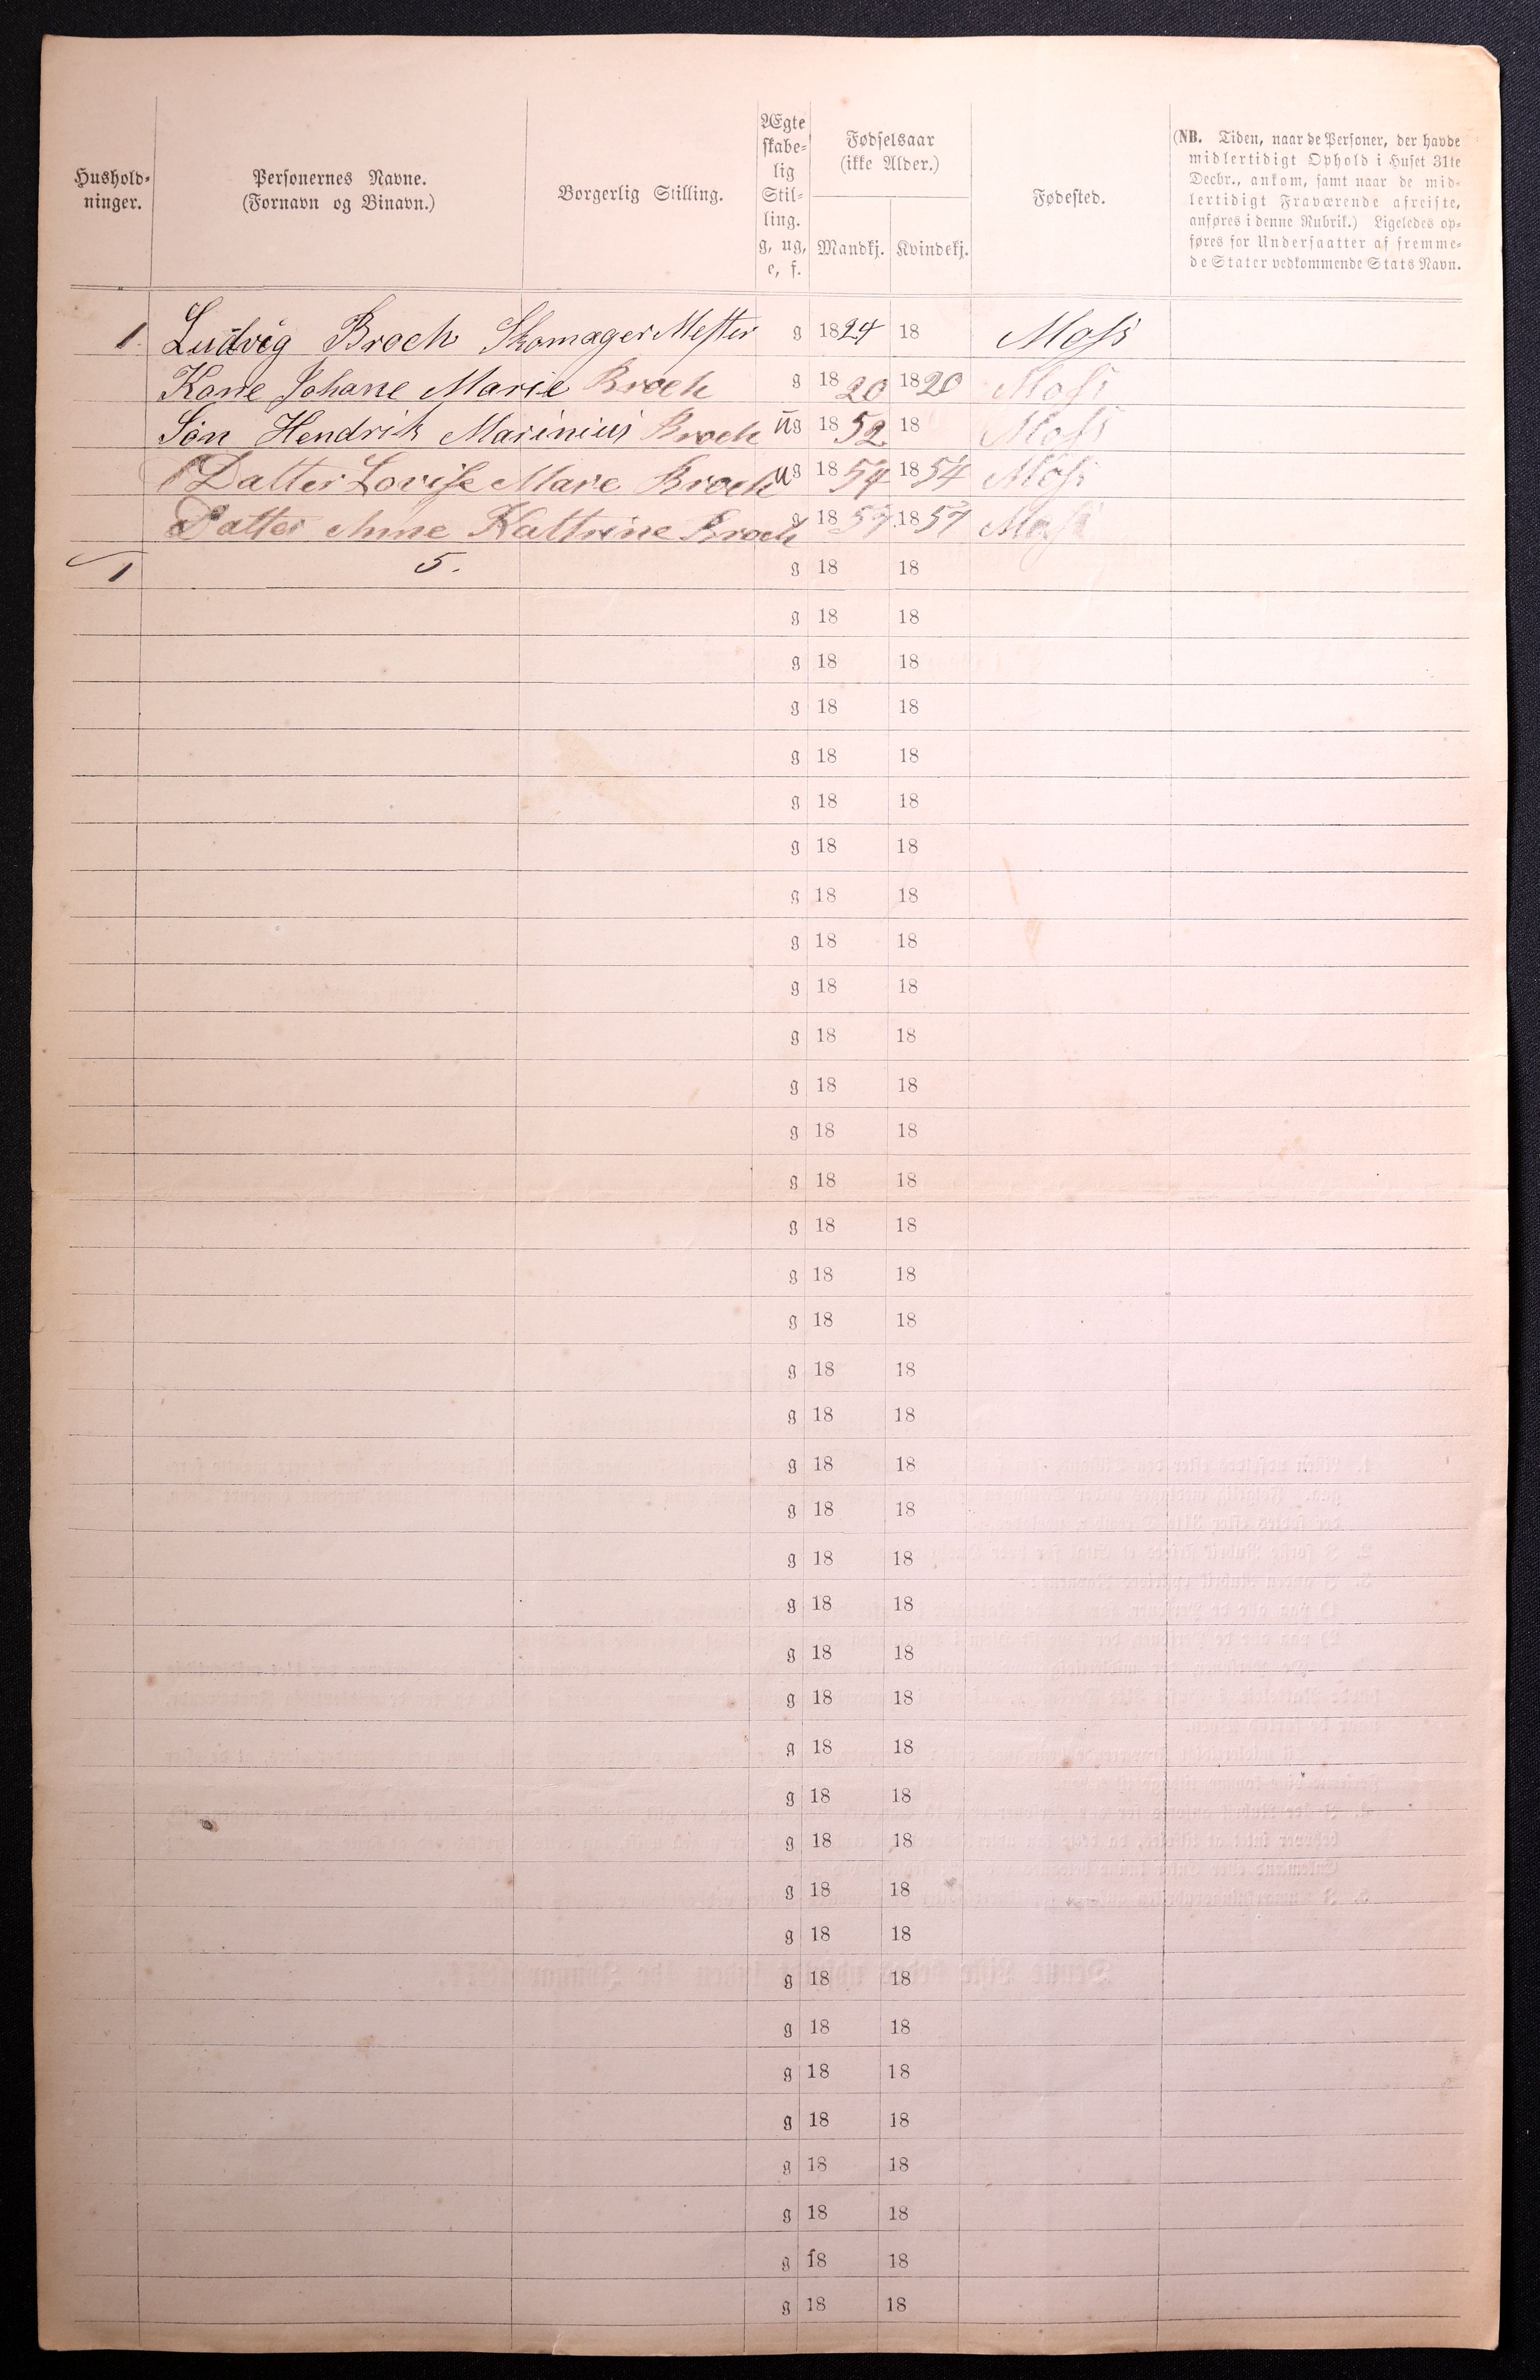 Hushold-
ninger.
Personernes Navne.
(Fornavn og Binavn.)
Borgerlig Stilling.
Ægte
skabe-
lig
Stil-
ling.
g, ug,
e, f.
Fødselsaar
(ikke Alder.)
Mandkj. Kvindekj.
Fødested.
(NB. Tiden, naar de Personer, der havde
midlertidigt Ophold i Huset 31te
Decbr., ankom, samt naar de mid-
lertidigt Fraværende afreiste,
anføres i denne Rubrik.) Ligeledes op-
føres for Undersaatter af fremme-
de Stater vedkommende Stats Navn.
1. Ludvig Broch Skomager Mester g 1824 18 Moss
Kone Johane Marie Broch g 1820 1820 Moss
Søn Hendrik Marinius Broch ug 1852 18 Moss
Datter Lovise Marie Broch ug 1854 1854 Moss
Datter Anne Kattrine Broch g 1857 1857 Moss
1 5. g 18 18
g 18 18
g 18 18
g 18 18
g 18 18
g 18 18
g 18 18
g 18 18
g 18 18
g 18 18
g 18 18
g 18 18
g 18 18
g 18 18
g 18 18
g 18 18
g 18 18
g 18 18
g 18 18
g 18 18
g 18 18
g 18 18
g 18 18
g 18 18
g 18 18
g 18 18
g 18 18
g 18 18
g 18 18
g 18 18
g 18 18
g 18 18
g 18 18
g 18 18
g 18 18
g 18 18
g 18 18
g 18 18